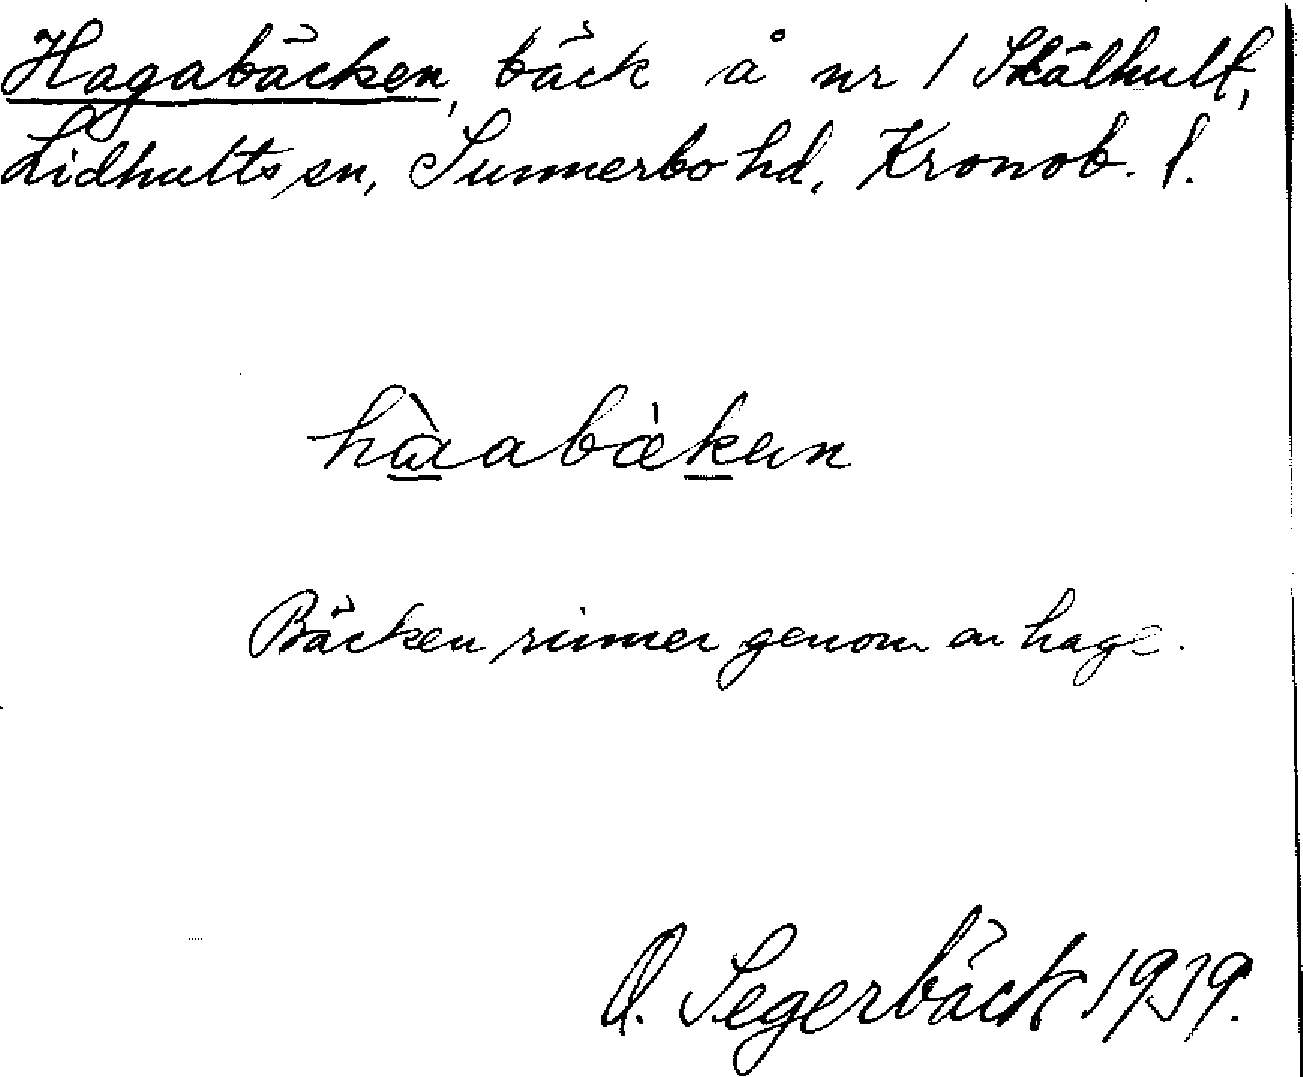 Hagabäcken, bäck å nr 1 Skälhult,
Lidhults sn, Sunnerbo hd, Kronob. l.
hàabæken
Bäcken rinner genom en hage.
O. Segerbäck 1939.